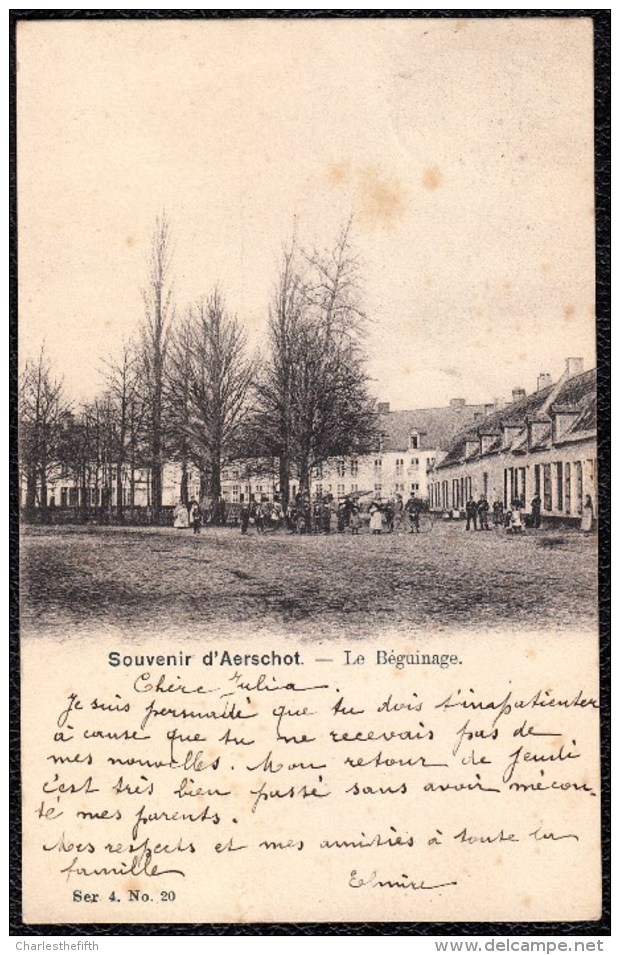 Souvenir d'Aerschot. — Le Béguinage.
Chère Julia.
Je suis persuadé que tu dois t'inapatienter
à cause que tu me recevais pas de
mes nouvelles. Mon retour de jeudi
c'est très bien passé sans avoir mécon-
té mes parents.
Mes respects et mes amitiés à toute la
famille
Elmire
Ser 4. No. 20
Charlesthefifth
delcampe.net